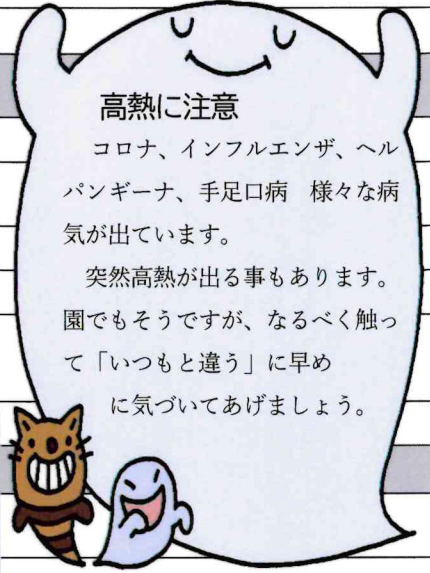 高熱に注意
コロナ、インフルエンザ、ヘル
パンギーナ、手足口病　様々な病
気が出ています。
突然高熱が出る事もあります。
園でもそうですが、なるべく触っ
て「いつもと違う」に早め
に気づいてあげましょう。